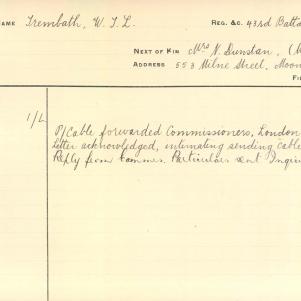 NAME Trembath, W. J. L. REG. &C. 43rd Batta
NEXT OF KIN Mrs N. Dunstan, (M
ADDRESS 553 Milne Street, Moon
FI
1/L P/Cable forwarded Commissioners, London
Letter acknowledged, intimating sending cable
Reply from Commrs. Particulars sent Inquir